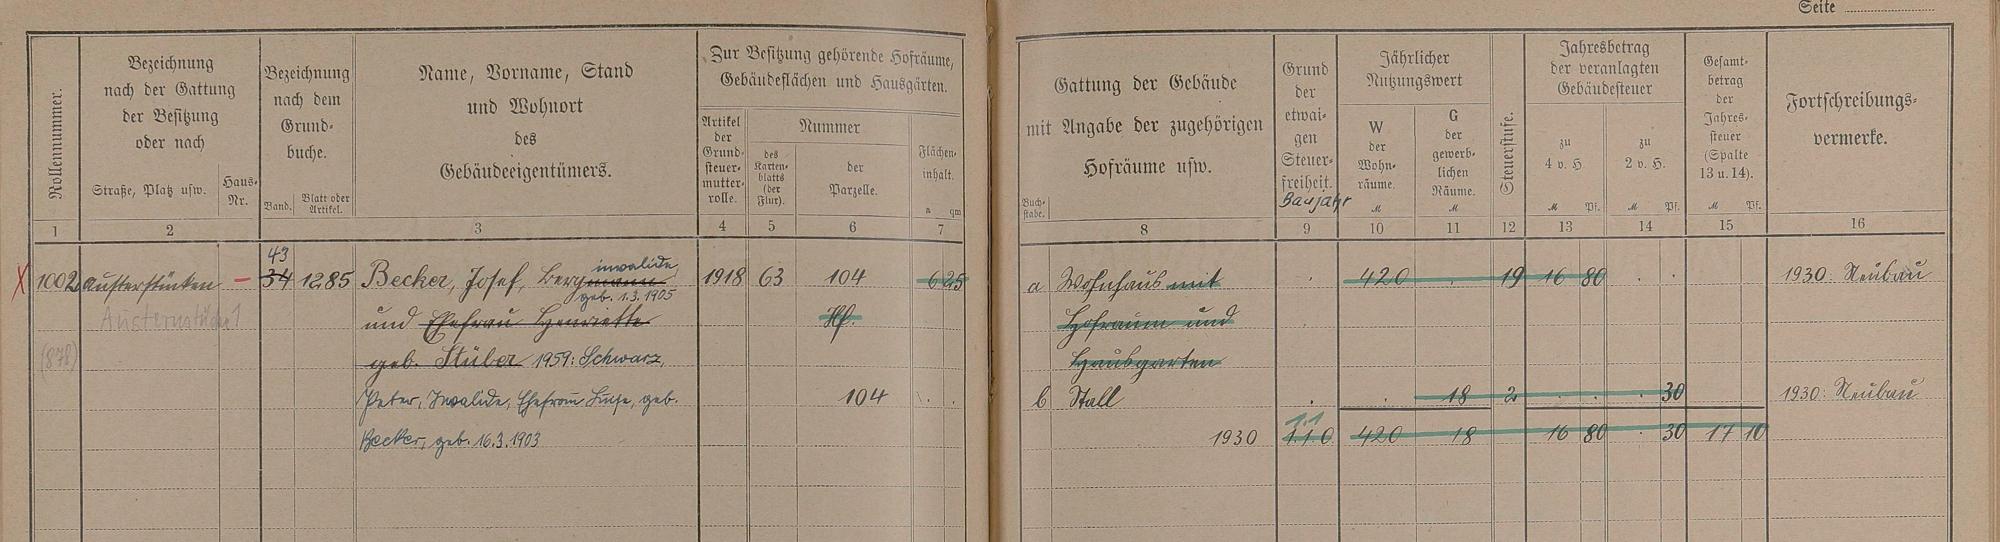 Seite
Rollennummer.
Bezeichnung
nach der Gattung
der Besitzung
oder nach
Straße, Platz usw.
Haus-
Nr.
Bezeichnung
nach dem
Grund-
buche.
Band.
Blatt oder
Artikel.
Name, Vorname, Stand
und Wohnort
des
Gebäudeeigentümers.
Zur Besitzung gehörende Hofräume,
Gebäudeflächen und Hausgärten.
Artikel
der
Grund-
steuer-
mutter-
rolle.
Nummer
des
Karten-
blatts
(der
Flur).
der
Parzelle.
Flächen-
inhalt.
a qm
Gattung der Gebäude
mit Angabe der zugehörigen
Hofräume usw.
Buch-
stabe.
Grund
der
etwai-
gen
Steuer-
freiheit.
Baujahr
Jährlicher
Nutzungswert
W
der
Wohn-
räume.
M
G
der
gewerb-
lichen
Räume.
M
Steuerstufe.
Jahresbetrag
der veranlagten
Gebäudesteuer
zu
4 v. H.
M Pf.
zu
2 v. H.
M Pf.
Gesamt-
betrag
der
Jahres-
steuer
(Spalte
13 u. 14).
M Pf.
Fortschreibungs-
vermerke.
1 2 3 4 5 6 7 8 9 10 11 12 13 14 15 16
43
invalide
X 1002 Austerstücken – 34 1285 Becker, Josef, Bergmann 1918 63 104 6 25 a Wohnhaus mit 420 19 16 80 1930: Neubau
geb. 1.3.1905
Austernstücke 1 und Ehefrau Henriette Hf. Hofraum und
(878) geb. Stüber 1959: Schwarz, Hausgarten
Peter, Invalide, Ehefrau Luise, geb. 104 b Stall 18 2 30 1930: Neubau
1.1
Becker, geb. 16.3.1903 1930 1.1.0 420 18 16 80 30 17 10